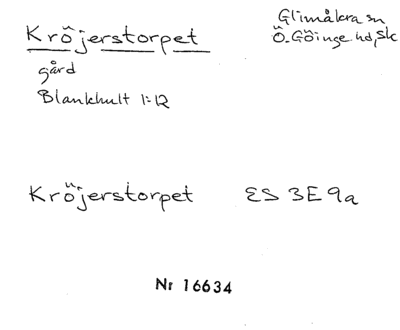 Kröjerstorpet
Glimåkra sn
Ö. Göinge hd, Sk
gård
Blankhult 1:12
Kröjerstorpet ES 3E9a
Nr 16634